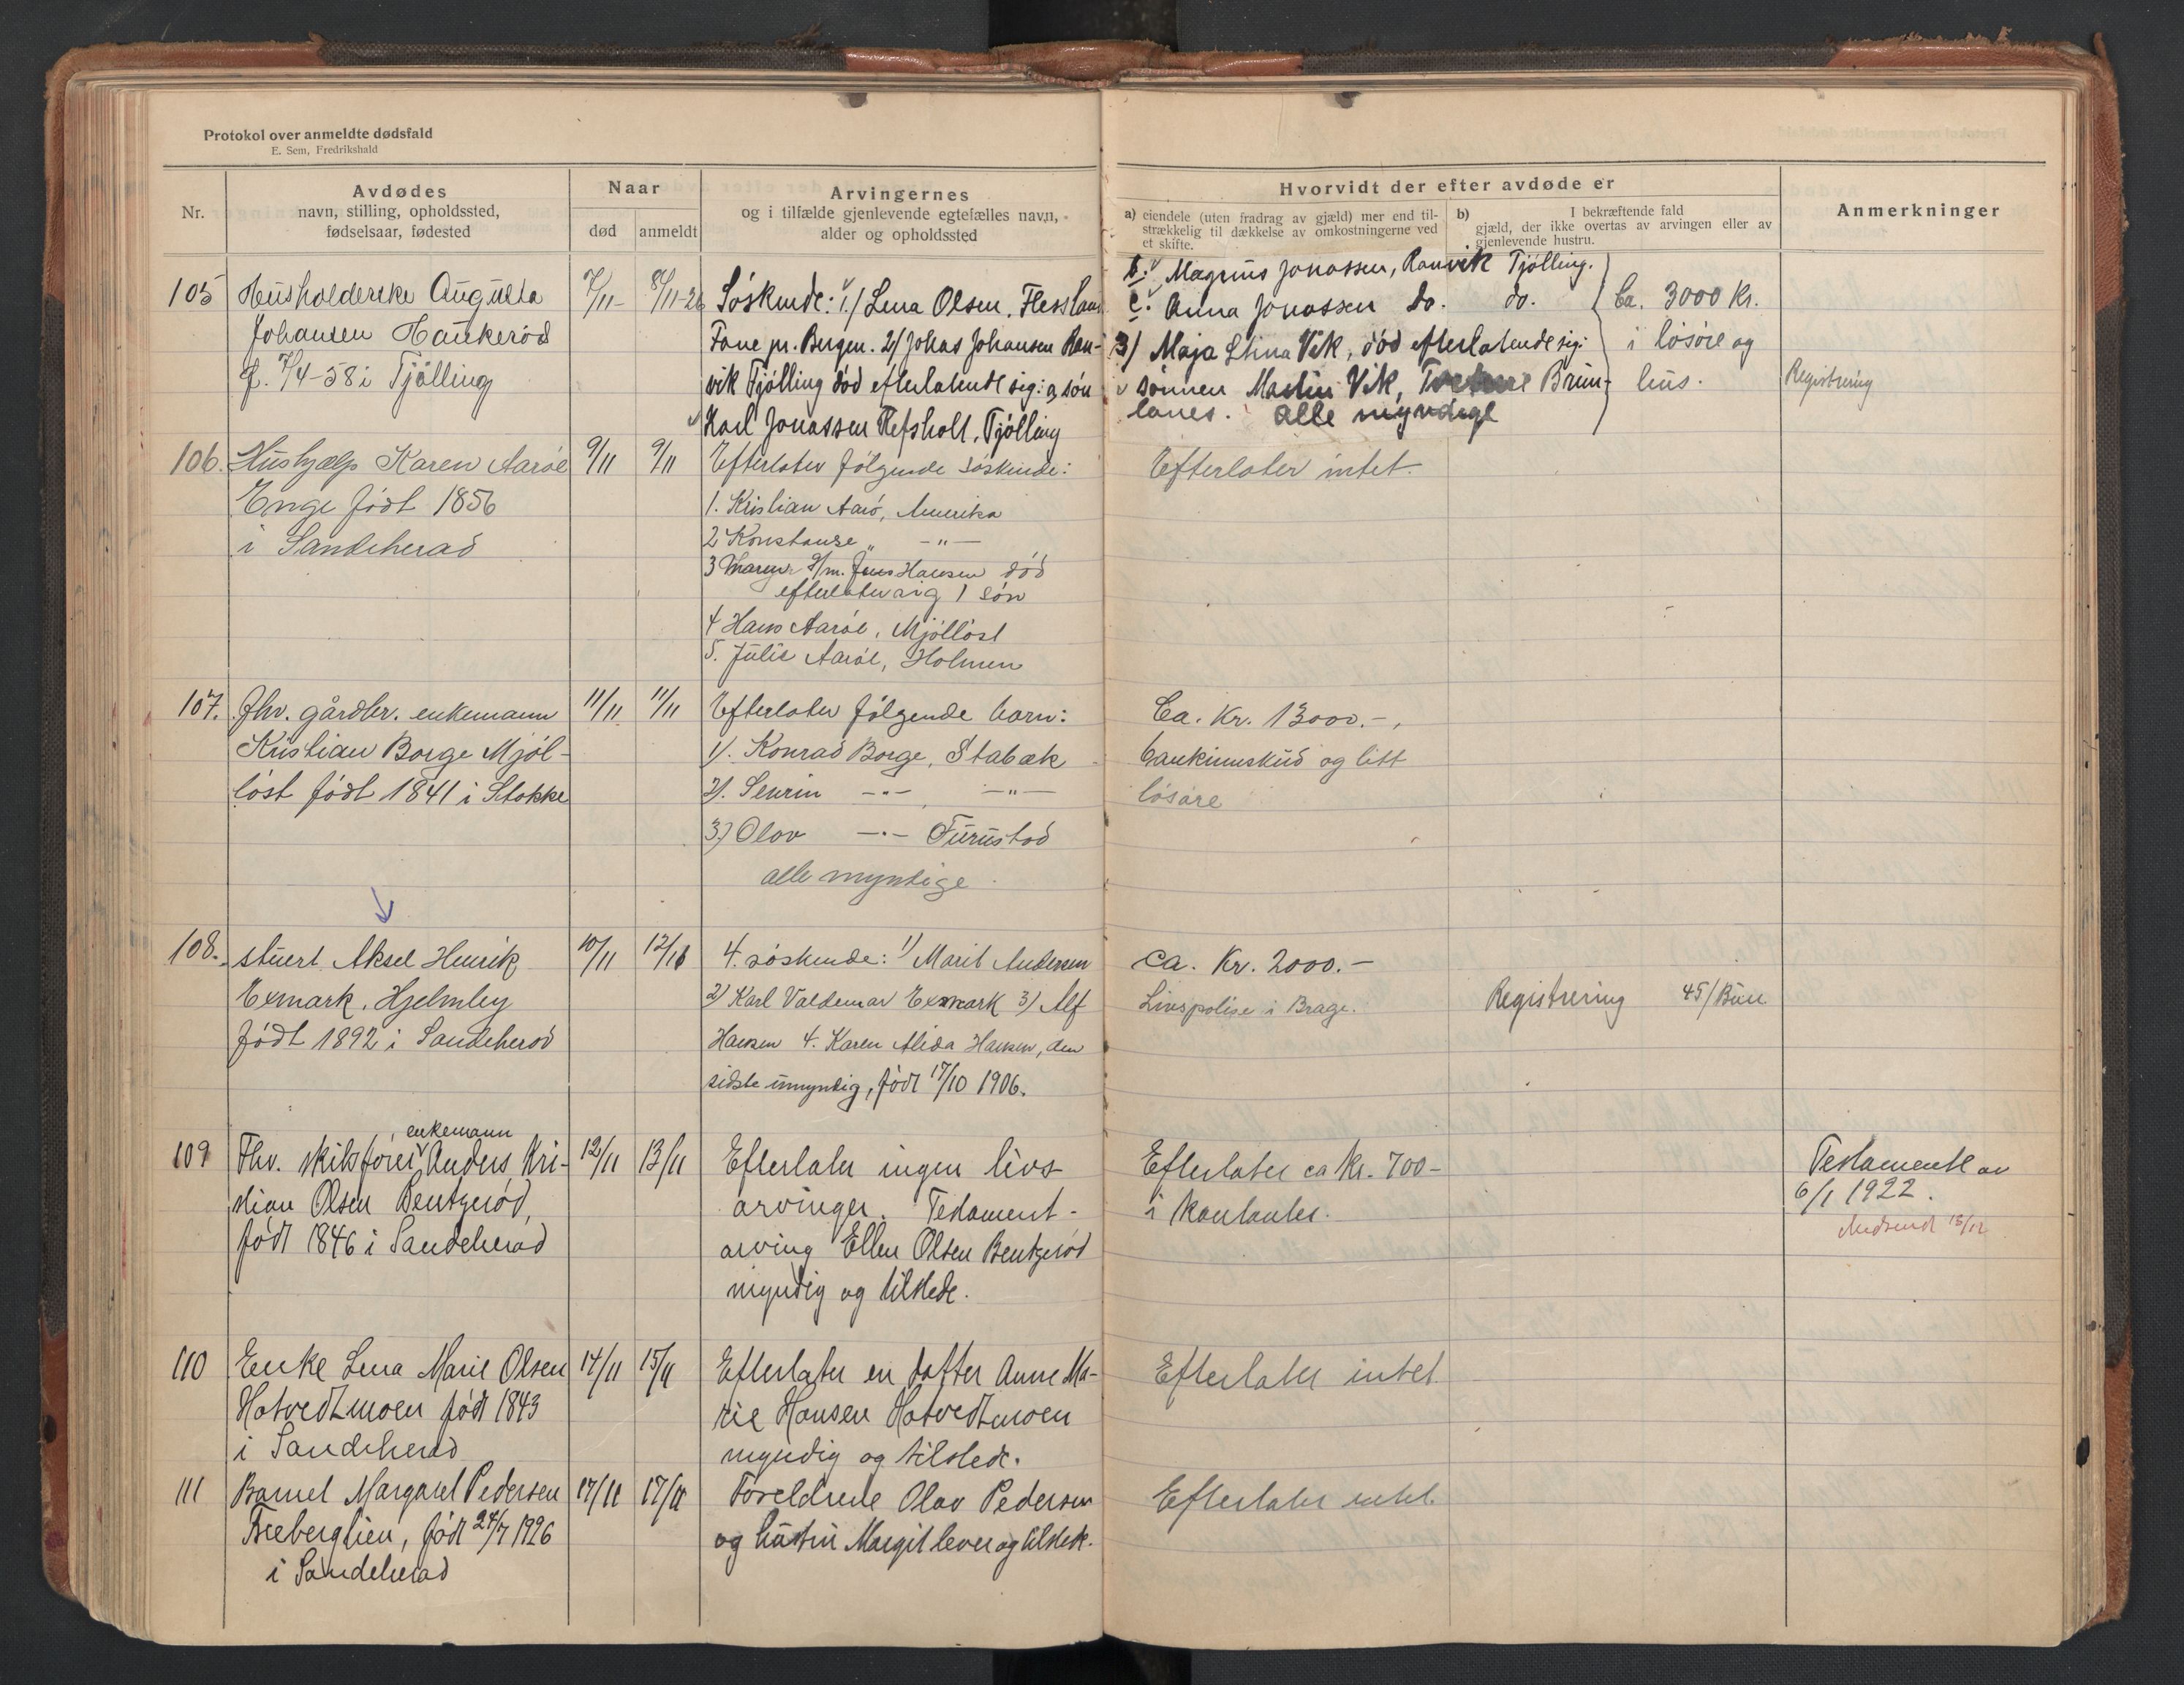 Protokol over anmeldte dødsfald
E. Sem, Fredrikshald
Nr.
Avdødes
navn, stilling, opholdssted,
fødselsaar, fødested
Naar
død
anmeldt
Arvingernes
og i tilfælde gjenlevende egtefælles navn,
alder og opholdssted
Hvorvidt der efter avdøde er
a) eiendele (uten fradrag av gjæld) mer end til-
strækkelig til dækkelse av omkostningerne ved
et skifte.
b) I bekræftende fald
gjæld, der ikke overtas av arvingen eller av
gjenlevende hustru.
Anmerkninger
105
Husholderske Augusta
Johansen Haukerød
f. 7/4-58 i Tjølling
7/11-
8/11-26
Søskende: 1/ Lena Olsen, Flessland
Fane pr. Bergen. 2/ Johas Johansen Ran-
vik Tjølling død efterlatende sig: a, søn
Karl Jonassen Refsholt, Tjølling
b. Magnus Jonassen, Ranvik Tjølling.
c. Anna Jonassen do. do.
3) Maja Stina Vik, død efterlatende sig:
sønnen Martin Vik, Brun-
lanes. Alle myndige
Ca. 3000 Kr.
i løsøre og
hus.
Registrering
106.
Hushjælp Karen Aarøe
Enge født 1856
i Sandeherad
9/11
9/11
Efterlater følgende søskende:
1. Kristian Aarø, Amerika
2 Konstanse „ -"-
3 Maren g/m. Jens Hansen død
efterlater sig 1 søn
4 Hans Aarøe, Mjølløst
5. Julie Aarøe, Holmen
Efterlater intet.
107.
Fhv. gårdbr. enkemann
Kristian Borge Mjøl-
løst født 1841 i Stokke
11/11
11/11
Efterlater følgende barn:
1). Konrad Borge, Stabæk
2). Senrin -"- , -"-
3) Olav -"- Furustad
alle myndige.
Ca. Kr. 13000.-,
bankinnskud og litt
løsøre
108.
stuert Aksel Henrik
Exmark, Hjelmley
født 1892 i Sandeherad
10/11
12/11
4. søskende: 1) Marit Andersen
2) Karl Valdemar Exmark 3) Alf
Hansen 4. Karen Alida Hansen, den
sidste umyndig, født 17/10 1906.
ca. Kr. 2000.-
Livspolise i Brage.
Registrering 45/
109
enkemann
Fhv. skibsfører, Anders Kri-
stian Olsen Bentzerød,
født 1846 i Sandeherad
12/11
13/11
Efterlater ingen livs-
arvinger. Testament-
arving Ellen Olsen Bentzerød
myndig og tilstede.
Efterlater ca Kr. 700-
i kontanter.
Testamente av
6/1 1922.
110
Enke Lena Marie Olsen
Hotvedtmoen født 1843
i Sandeherad
14/11
15/11
Efterlater en datter Anne Ma-
rie Hansen Hotvedtmoen
myndig og tilstede.
Efterlater intet
111
Barnet Margaret Pedersen
Breberglien, født 24/7 1926
i Sandeherad
17/11
17/11
Foreldrene Olav Pedersen
og hustru Margit lever og tilstede.
Efterlater intet.